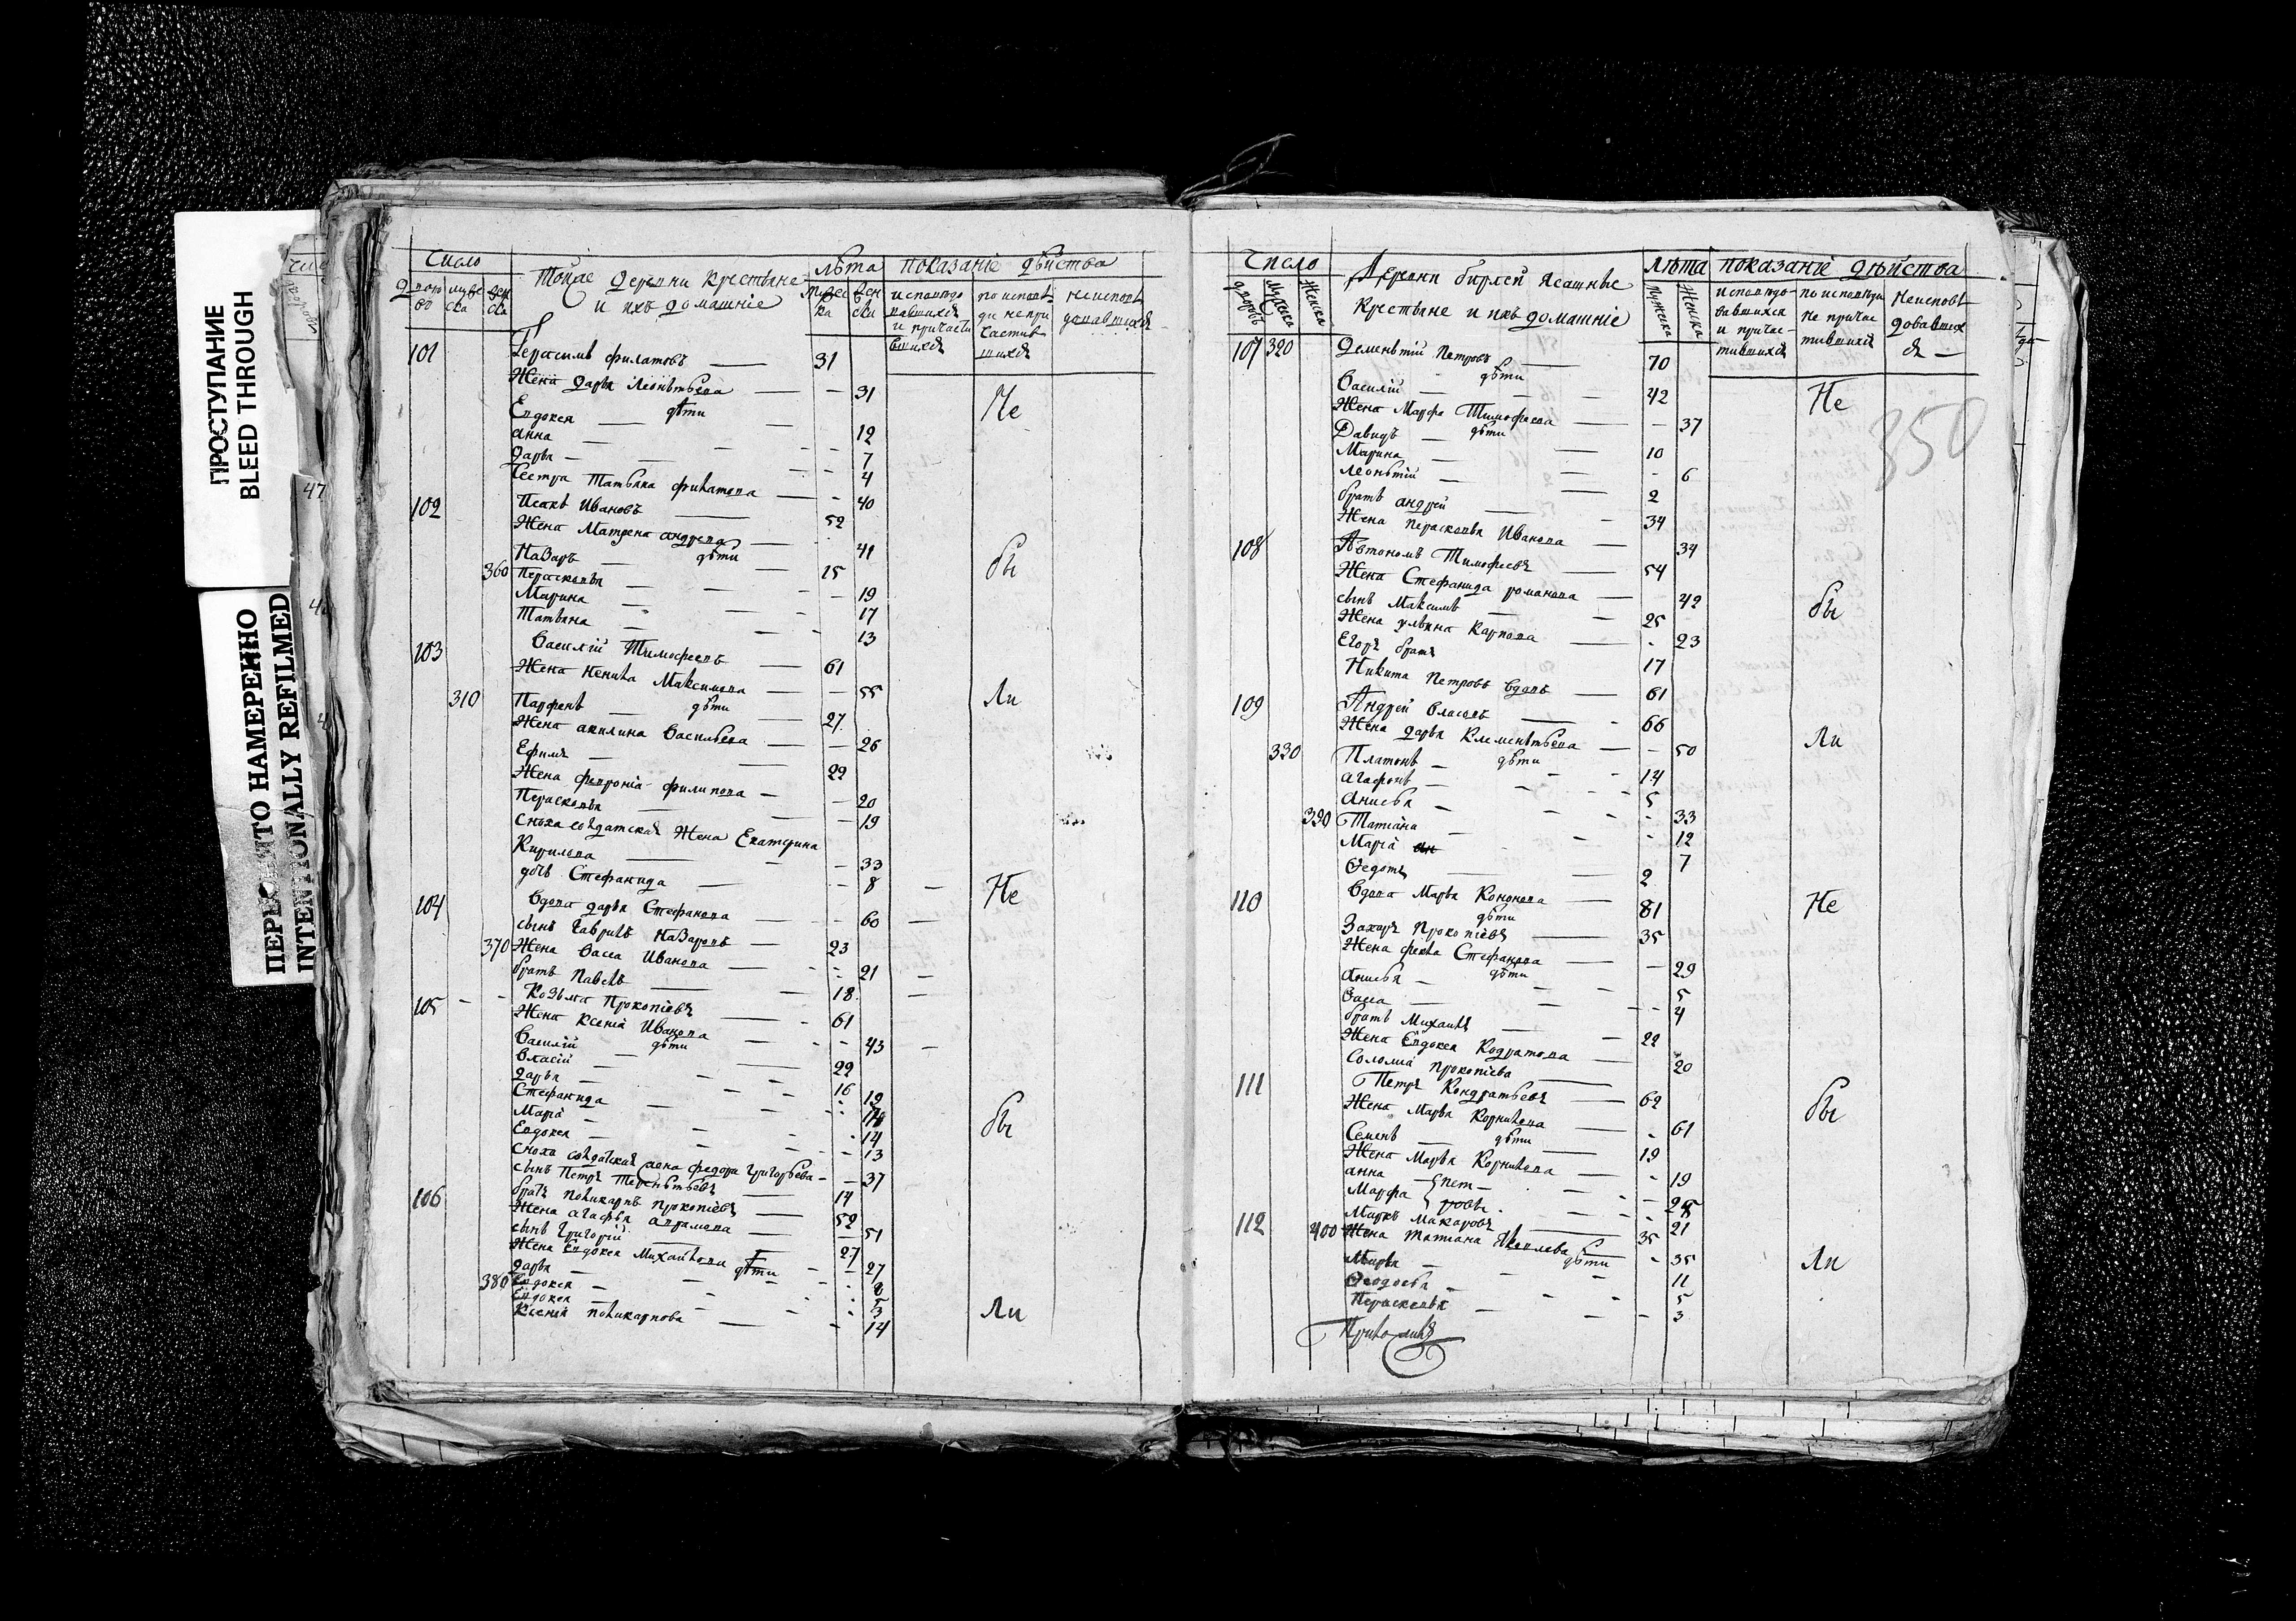 ПРОСТУПАНИЕ
BLEED THROUGH
ПЕРЕСНЯТО НАМЕРЕННО
INTENTIONALLY REFILMED
Число Тойже деревни крестьяне и ихъ домашніе лѣта показаніе дѣйства
101 Герасимъ филатовъ — 31
Жена дарья Леонътьева — 31
дѣти
Евдокея — 12
анна — 7
дарья — 4
Сестра Татьяна филатова — 40
Не
102 Исакъ Ивановъ — 52
Жена Матрена андреева — 41
дѣти
Назаръ — 15
360 Перасковья — 19
Марина — 17
Татьяна — 13
бы
103 Василій Тимофеевъ — 61
Жена Ненила Максимова — 55
дѣти
310 Парфенъ — 27
Жена акилина Васильева — 26
Ефимъ — 22
Жена февронія филипова — 20
Перасковья — 19
Сноха солдатская Жена Екатерина
Кирилова — 33
дочь Стефанида — 8
Ли
104 Вдова дарья Стефанова — 60
сынъ Гаврилъ Назаровъ — 23
370 Жена Васса Иванова — 21
братъ Павелъ — 18
Не
105 Козьма Прокопіевъ — 61
Жена Ксенія Иванова — 43
дѣти
Василій — 22
Власій — 16
дарья — 19
Стефанида
Марія — 14
Евдокея — 13
Сноха солдатская жена федора Григорьева — 37
сынъ Петръ Терентьевъ — 14
бы
106 братъ поликарпъ прокопіевъ — 52
Жена агафья аврамова — 51
сынъ Григорій — 27
Жена Евдокея Михайлова — 27
дѣти
дарья — 8
380 Евдокея — 5
Евдокея — 3
Ксенія поликарпова — 14
Ли
Число Деревни бирлей Ясашные Крестьяне и ихъ домашніе лѣта показаніе дѣйства
350
107 320 Дементій Петровъ — 70
дѣти
Василій — 42
Жена Марфа Тимофеева — 37
дѣти
Давидъ — 10
Марина — 6
Леонътій — 2
братъ андрей — 34
Жена перасковья Иванова — 34
Не
108 Автономъ Тимофеевъ — 54
Жена Стефанида романова — 42
сынъ Максимъ — 25
Жена ульяна Карпова — 23
Егоръ братъ — 17
Никита Петровъ вдовъ — 61
бы
109 Андрей Власовъ — 66
Жена дарья Клементьева — 50
дѣти
330 Платонъ — 14
агафонъ — 5
анисья — 33
390 Татіана — 12
Марія — 7
Ѳедотъ — 2
Ли
110 Вдова Марья Кононова — 81
дѣти
Захаръ Прокопіевъ — 35
Жена фекла Стефанова — 29
дѣти
анисья — 5
Васса — 4
братъ Михаилъ — 22
Жена Евдокея Кодратова — 20
Соломія прокопіева
Не
111 Петръ Кондратьевъ — 62
Жена Марья Корнилова — 61
дѣти
Семенъ — 19
Жена Марья Корнилова — 19
анна
Марфа петровы — 21
бы
112 Маркъ Макаровъ — 35
400 Жена татіана Яковлева — 35
дѣти
Марья — 11
Ѳеодосья — 5
Пераскевья — 3
Ли